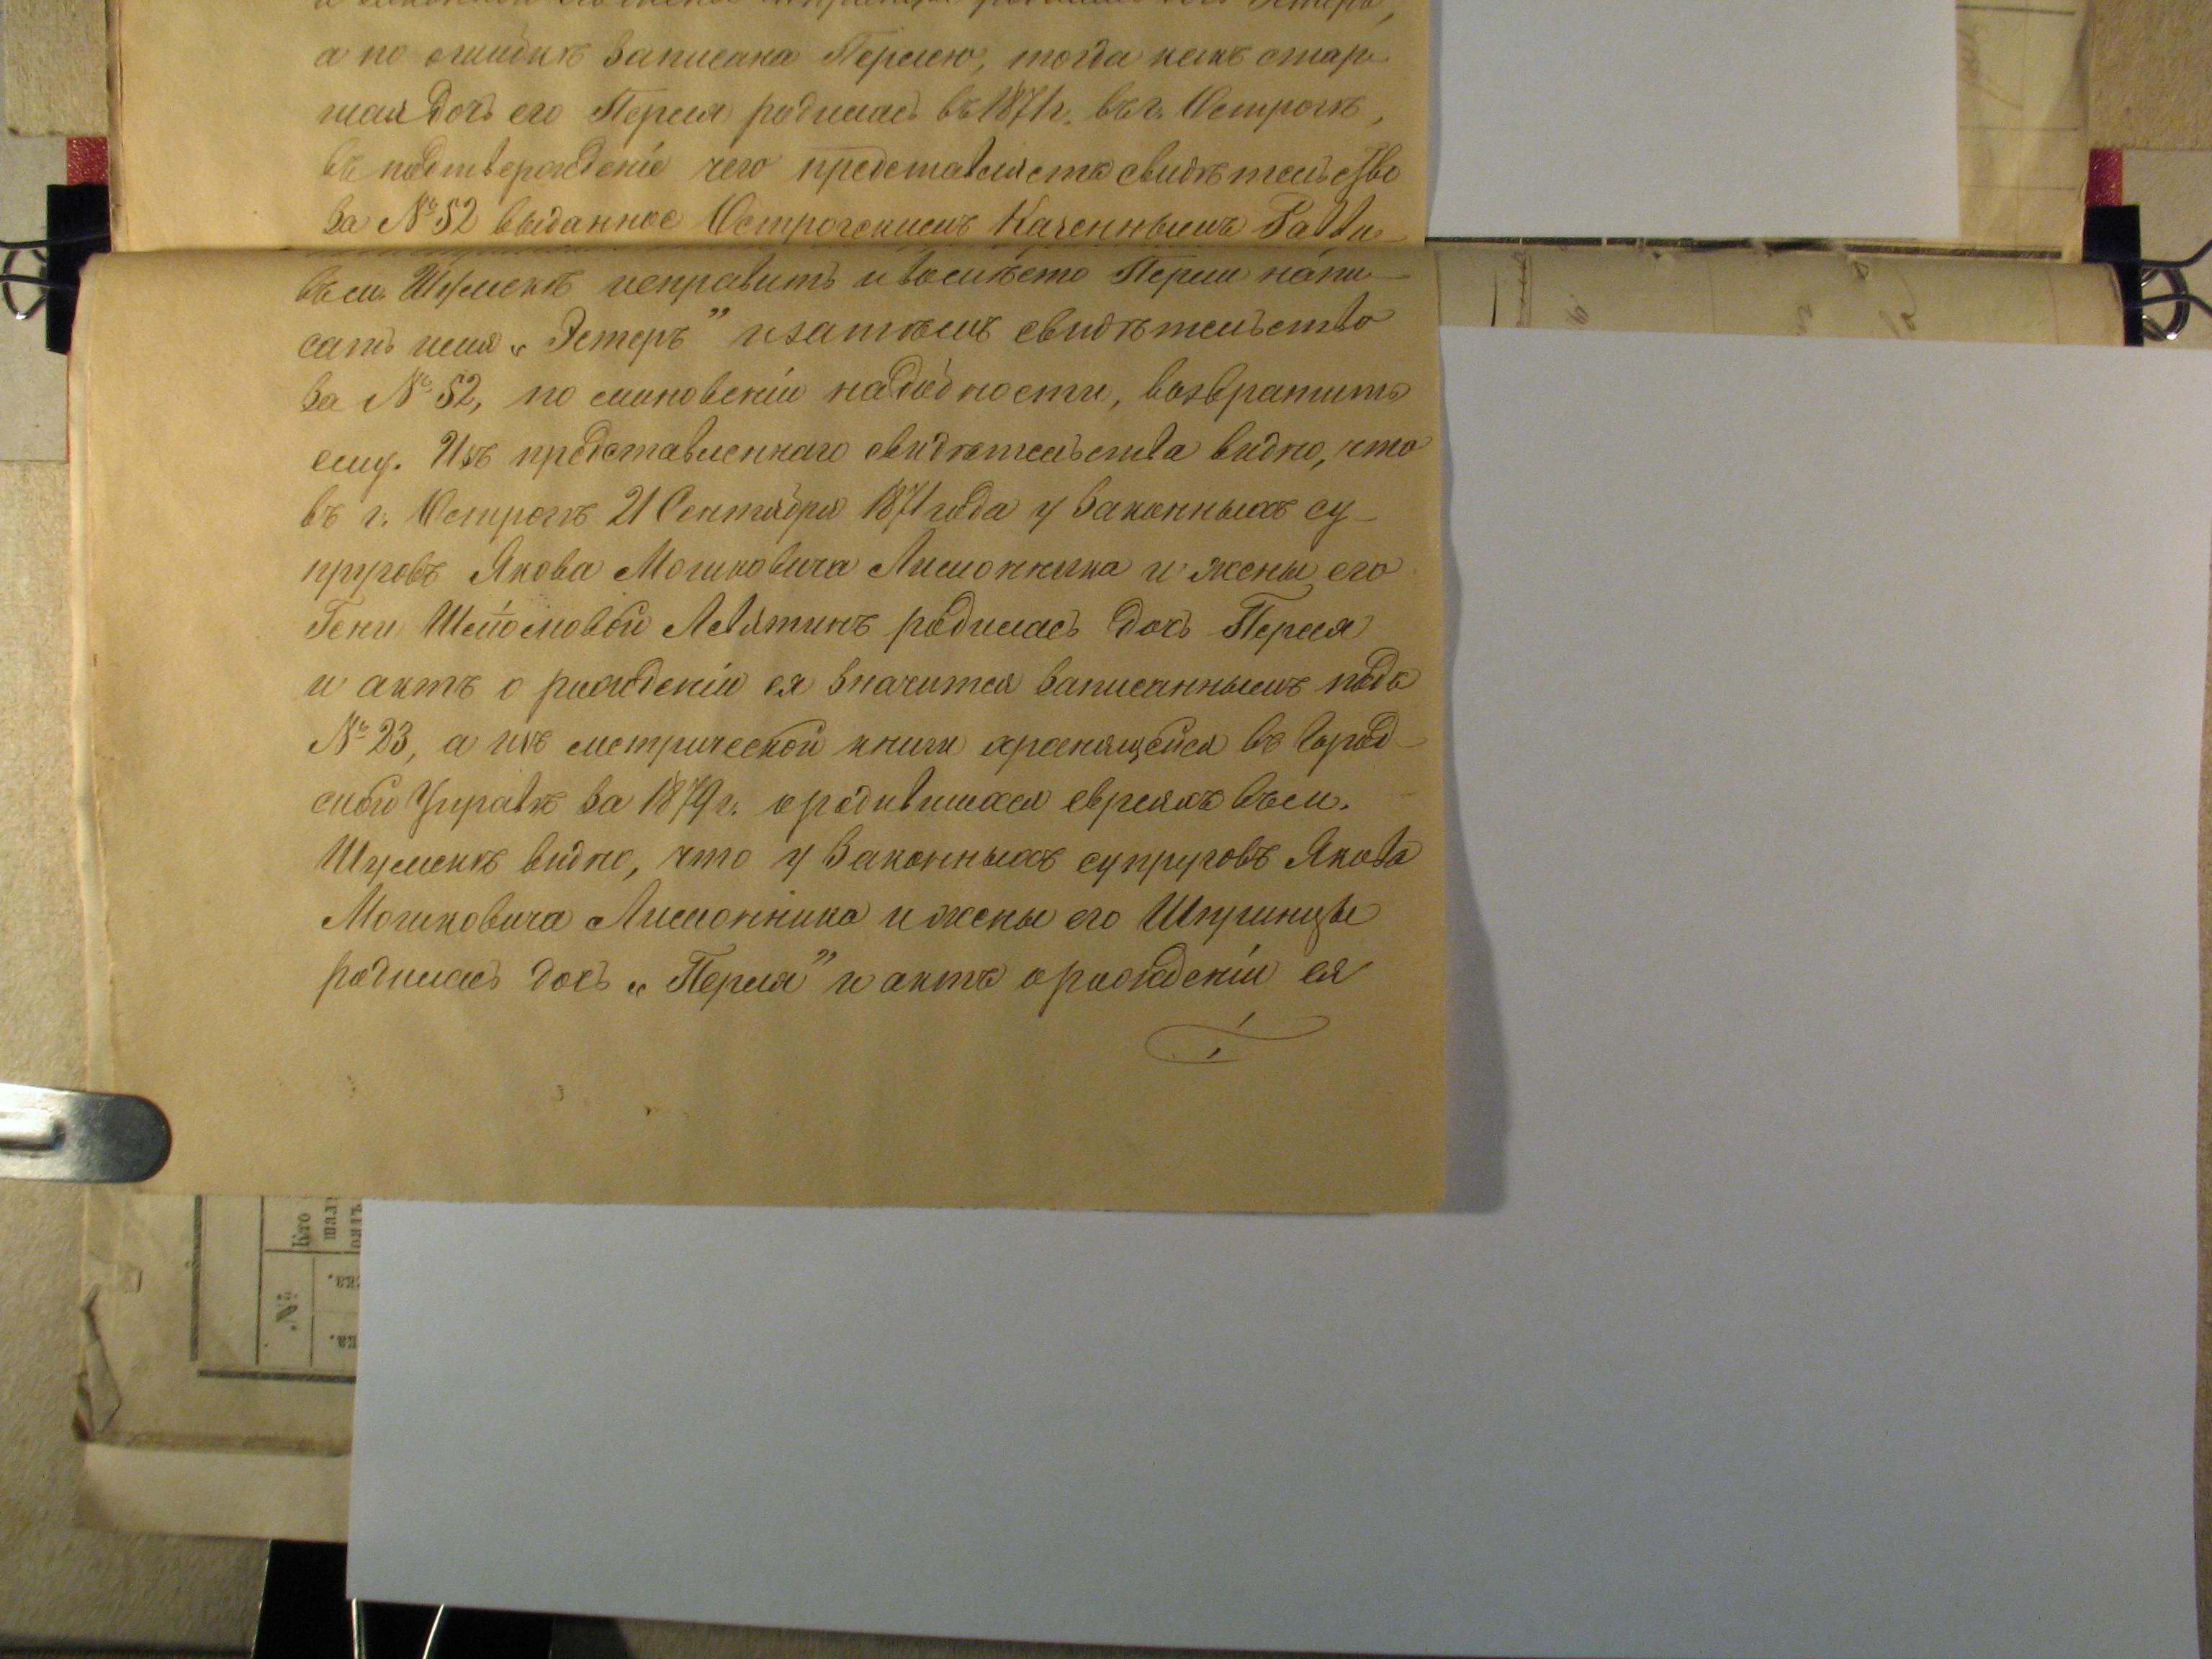 а по ошибкѣ записана Перлею, тогда какъ стар-
шая дочь его Перля родилась въ 1871 г. въ г. Острогѣ,
въ подтвержденіе чего представляетъ свидѣтельство
за № 52 выданное Острогскимъ Казеннымъ Равви-
въ м. Шумскѣ исправить и вомѣсто Перли напи-
сать имя „Эстеръ” и затѣмъ свидѣтельство
за № 52, по минованіи надобности, возвратить
ему. Изъ представленнаго свидѣтельства видно, что
въ г. Острогѣ 21 Сентября 1871 года у законныхъ су-
пруговъ Якова Мошковича Лимонника и жены его
Гени Шейомовой Левятинъ родилась дочь Перля
и актъ о рожденіи ея значится записаннымъ подъ
№ 23, а изъ метрической книги хранящейся въ Город-
ской Управѣ за 1879 г. о родившихся евреяхъ въ м.
Шумскѣ видно, что у законныхъ супруговъ Якова
Мошковича Лимонника и жены его Шпринцы
родилась дочь „Перля” и актъ о рожденіи ея
№
Кто